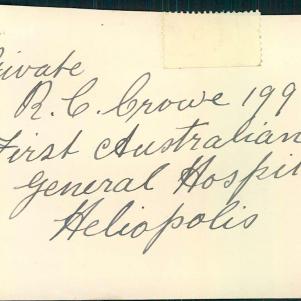 rivate
R. C. Crowe 199
First Australian
General Hospi
Heliopolis